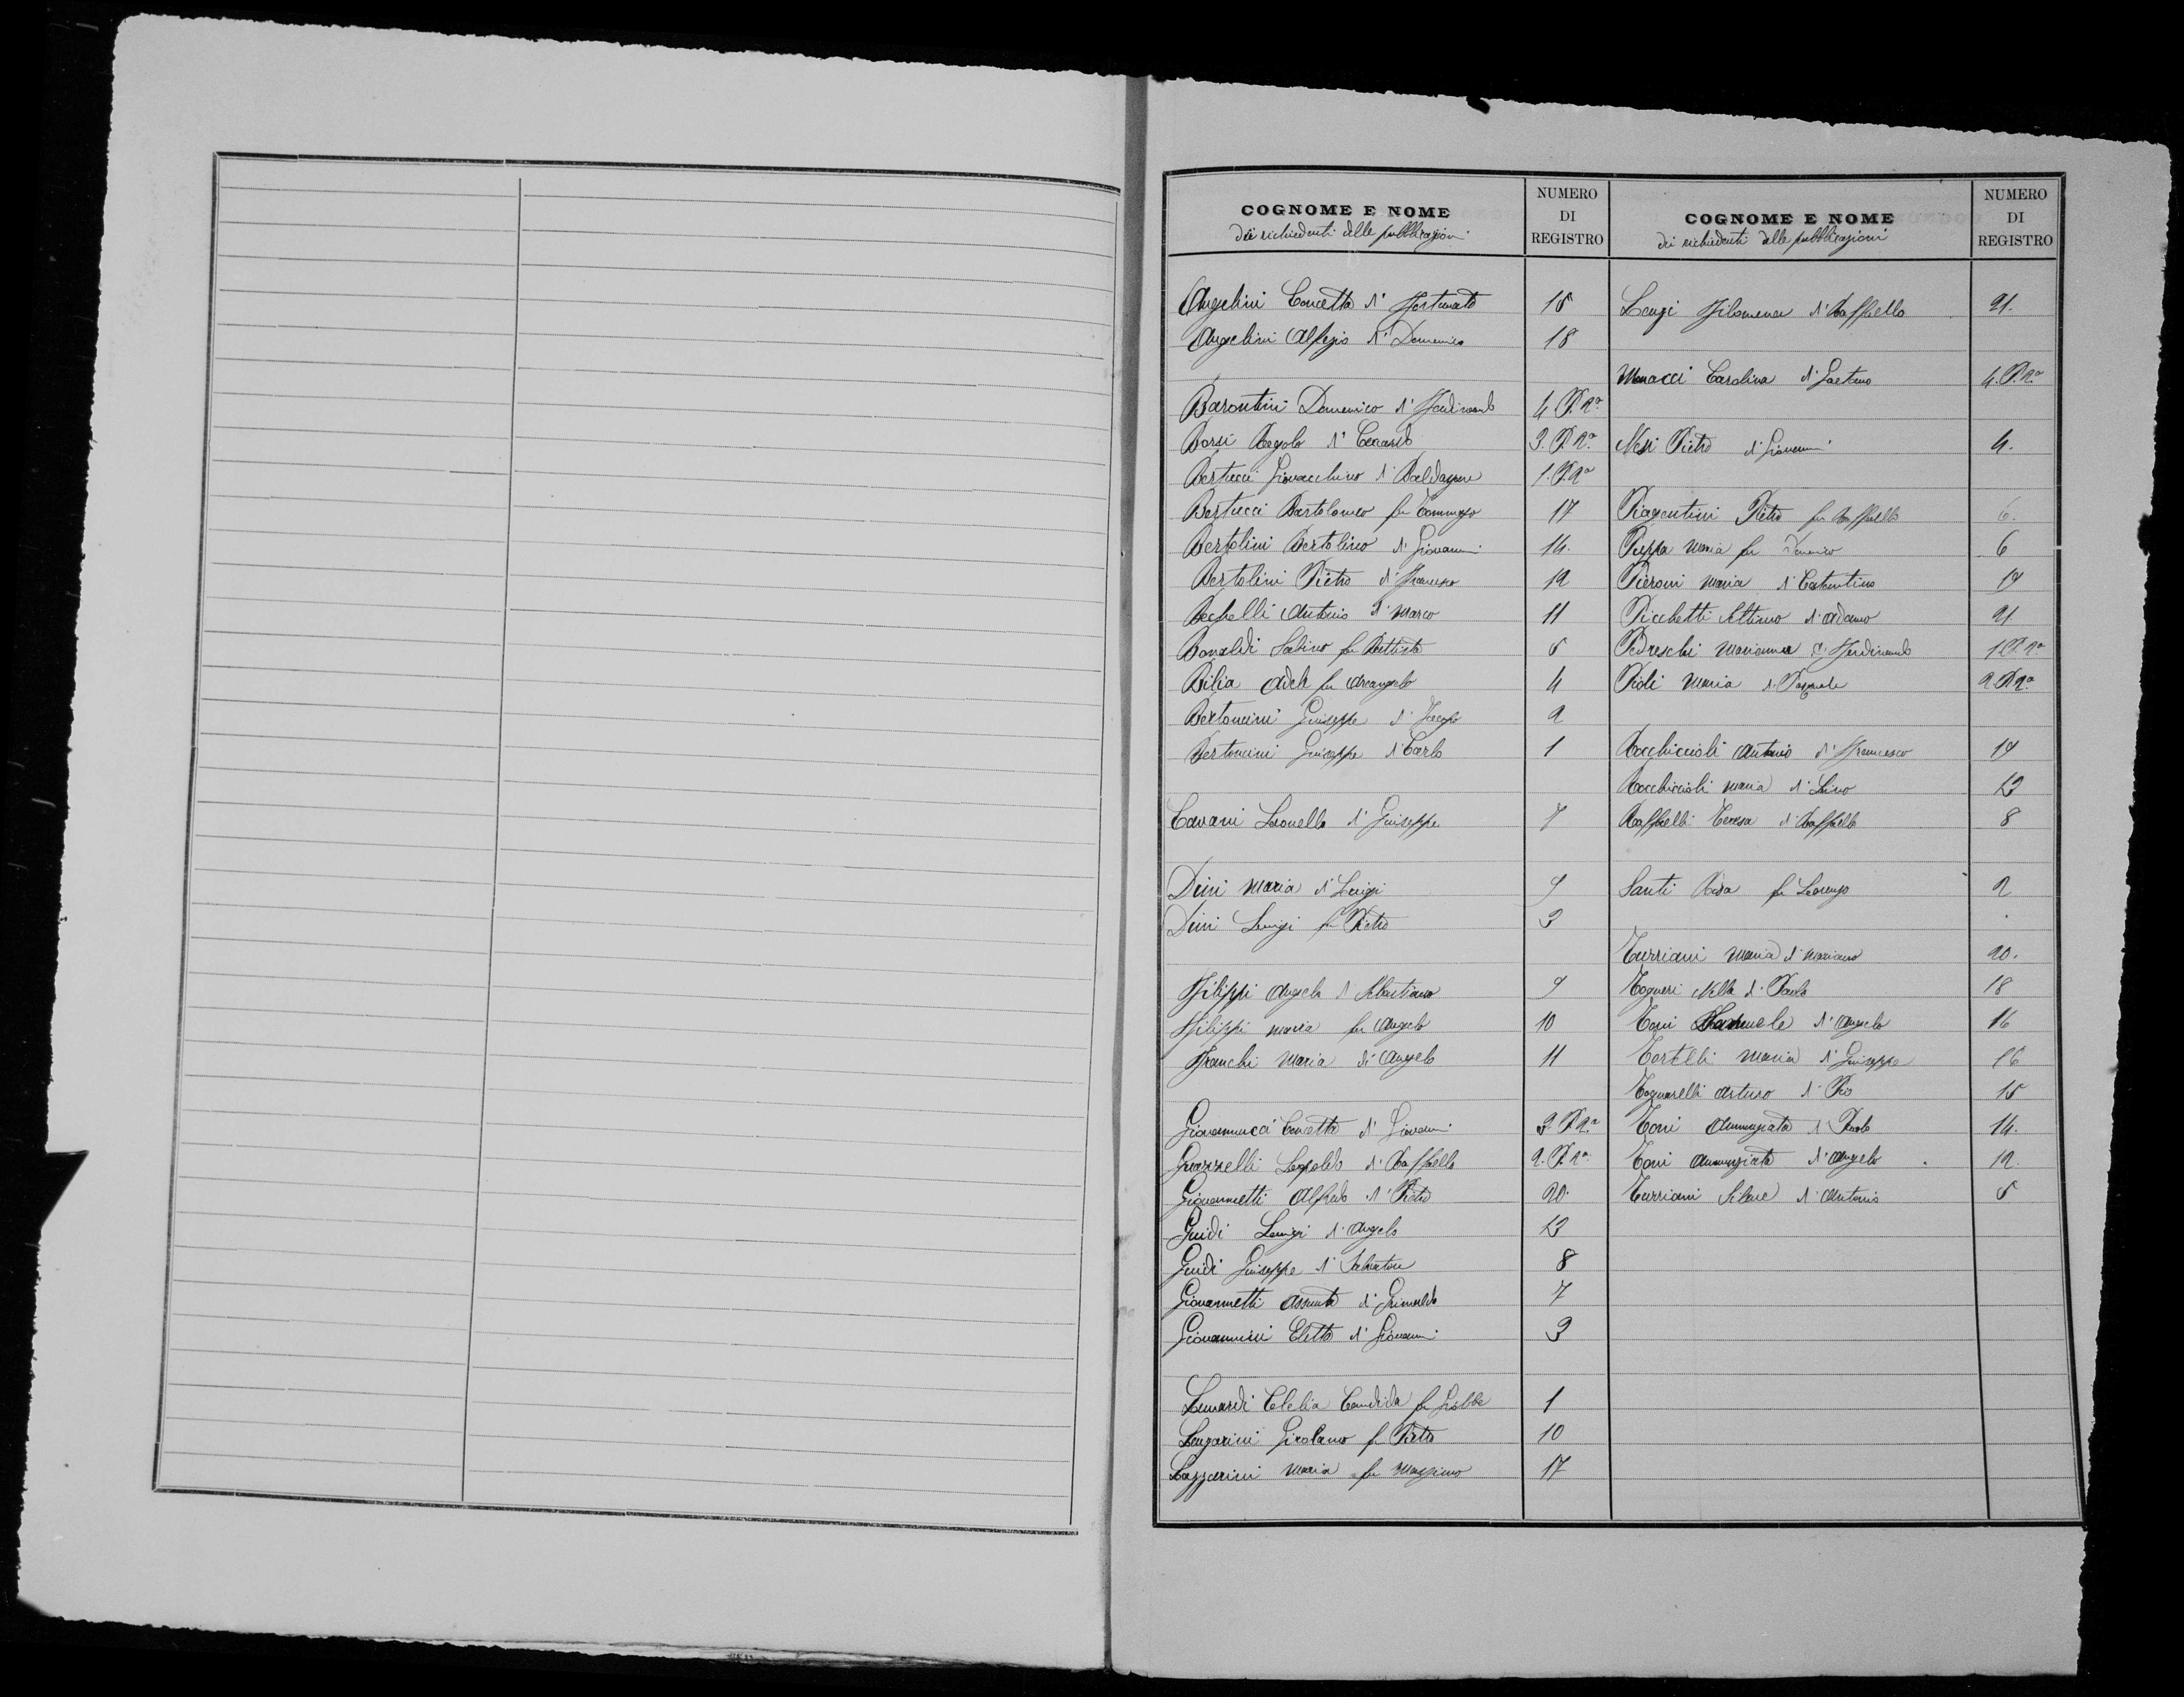 COGNOME E NOME
dei richiedenti delle pubblicazioni
NUMERO
DI
REGISTRO
Angelini Concetta di Fortunato 15
Angelini Alfezio di Domenico 18
Barontini Domenico di Ferdinando 4. P. 2ª
Borsi Regolo di 3. P. 2ª
Bertucci Giovacchino di 1. P. 2ª
Bertucci Bartolomeo fu Tommaso 17
Bertolini Bertolino di Giovanni 14.
Bertolini Pietro di Francesco 12
Bechelli Antonio di Marco 11
Bonaldi Sabino fu Battista 5
Bilia Adele fu Arcangelo 4
Bertoncini Giuseppe di Jacopo 2
Bertoncini Giuseppe di Carlo 1
Cavani Leonello di Giuseppe 7
Dini Maria di Luigi 9
Dini Luigi fu Pietro 3
Filippi Angela di Sebastiano 9
Filippi Maria fu Angelo 10
Franchi Maria di Angelo 11
Giovannucci Concetta di Giovanni 3. P. 2ª
Guazzelli Leopoldo di Raffaello 2. P. 2ª
Giovannetti Alfredo di Pietro 20.
Guidi Luigi di Angelo 13
Guidi Giuseppe di Salvatore 8
Giovannetti Assunta di Grimaldo 7
Giovannini Eletto di Giovanni 3
Lunardi Clelia Candida fu Giobbe 1
Lenzarini Girolamo fu Pietro 10
Lazzarini Maria fu Massimo 17
COGNOME E NOME
dei richiedenti delle pubblicazioni
NUMERO
DI
REGISTRO
Lenzi Filomena di Raffaello 21.
Monacci Carolina di Gaetano 4. P. 2ª
Nesi Pietro di Giovanni 4.
Piagentini Pietro fu Raffaello 6.
Puppa Maria fu Domenico 6
Pieroni Maria di 19
Picchetti Settimo di Adamo 21
Pedreschi Marianna di Ferdinando 1. P. 2ª
Pioli Maria di Pasquale 2. P. 2ª
Rocchiccioli Antonio di Francesco 19
Rocchiccioli Maria di Lino 13
Raffaelli Teresa di Raffaello 8
Santi Rosa fu Lorenzo 2
Turriani Maria di Mariano 20.
Togneri Nella di Paolo 18
Toni Samuele di Angelo 16
Tortelli Maria di Giuseppe 16
Tognarelli Arturo di Pio 15
Toni Annunziata di Paolo 14.
Toni Annunziata di Angelo 12.
Turriani Silave di Antonio 5